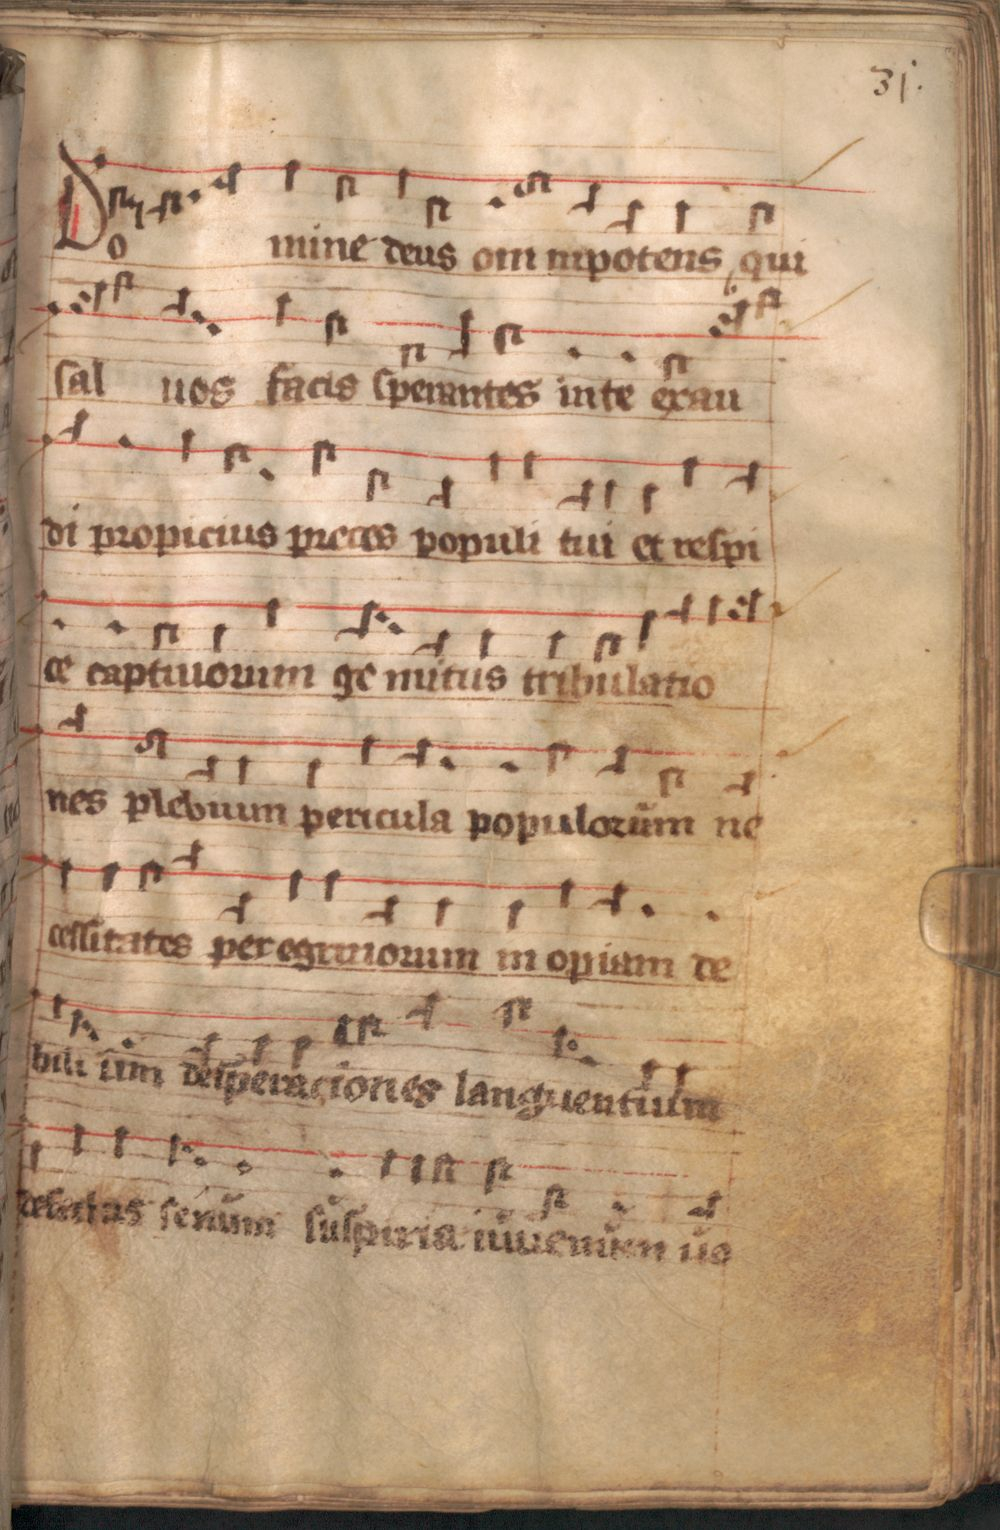 31.
Do mine deus om nipotens qui
sal uos facis sperantes in te exau
di propicius preces populi tui et respi
ce captiuorum ge mitus tribulatio
nes plebium pericula populorum ne
cessitates peregrinorum in opiam de
bili um desperaciones languentium
defectus senum suspiria iuuenum uo